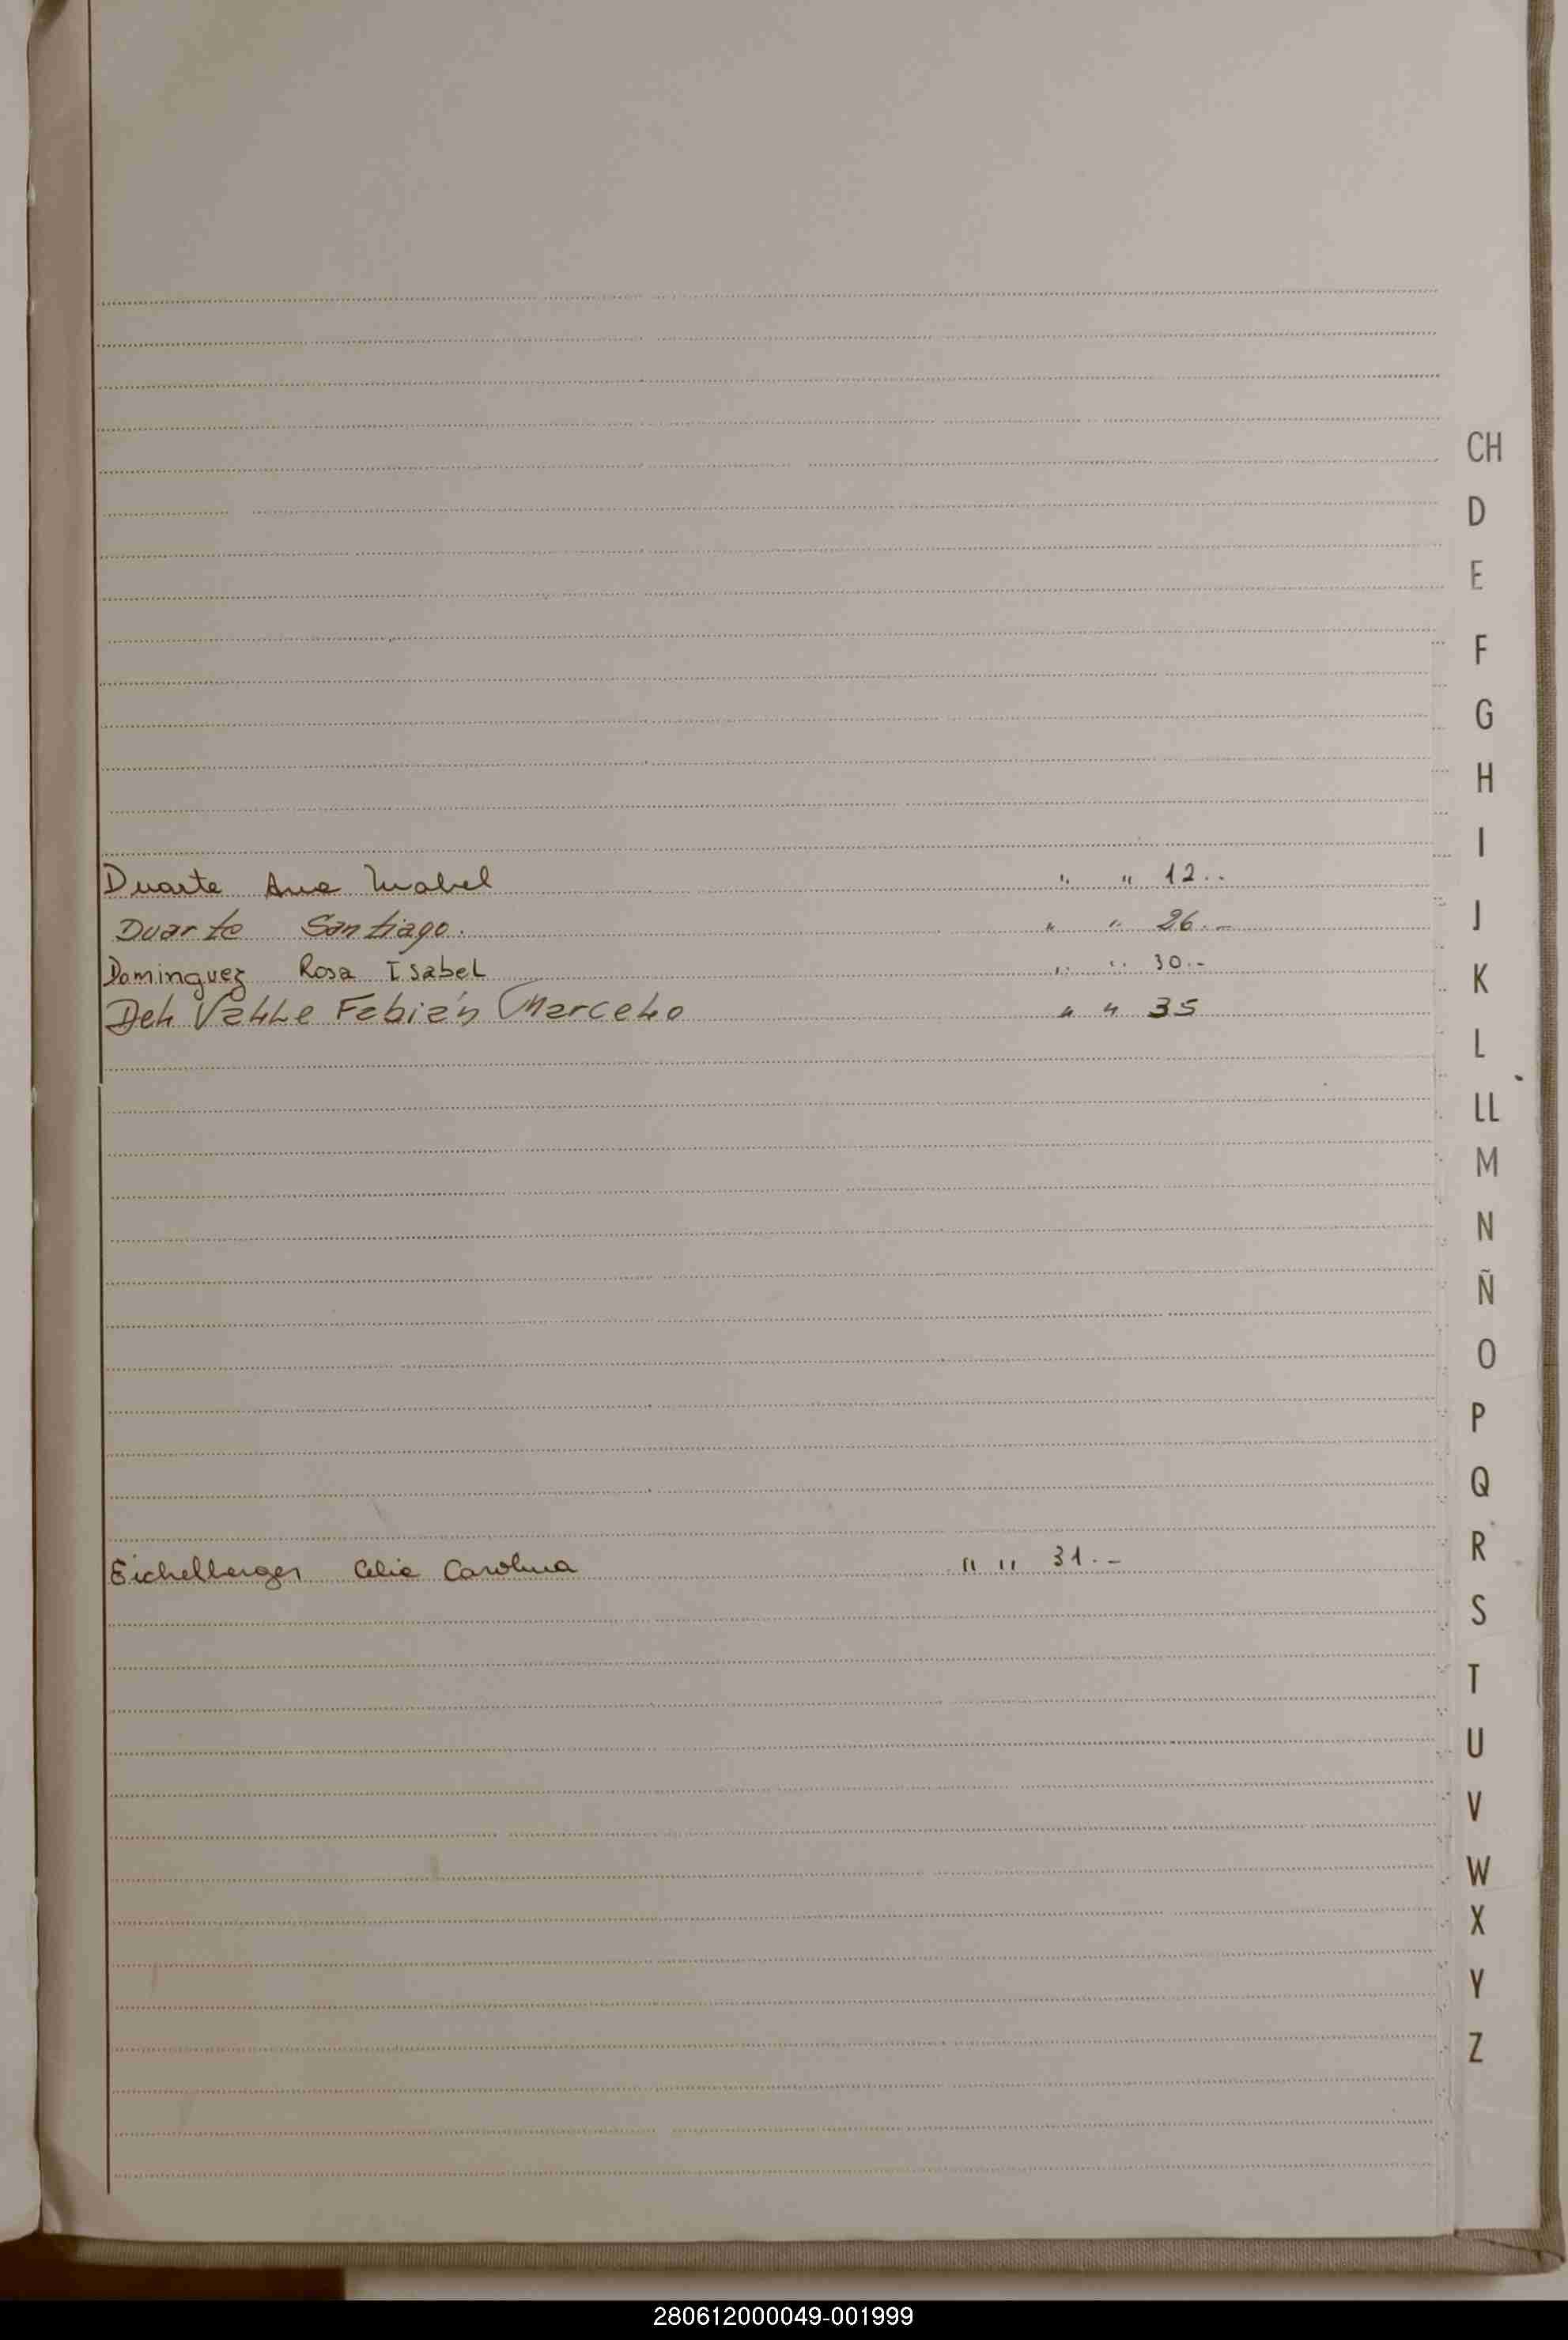 CH
D
E
F
G
H
I
Duarte Ana Mabel " " 12.-
J
Duarte Santiago. " " 26.-
Dominguez Rosa Isabel " " 30.-
K
Del Valle Fabián Marcelo " " 35
L
LL
M
N
Ñ
O
P
Q
R
Eichelberger Celia Carolina " " 31.-
S
T
U
V
W
X
Y
Z
280612000049-001999